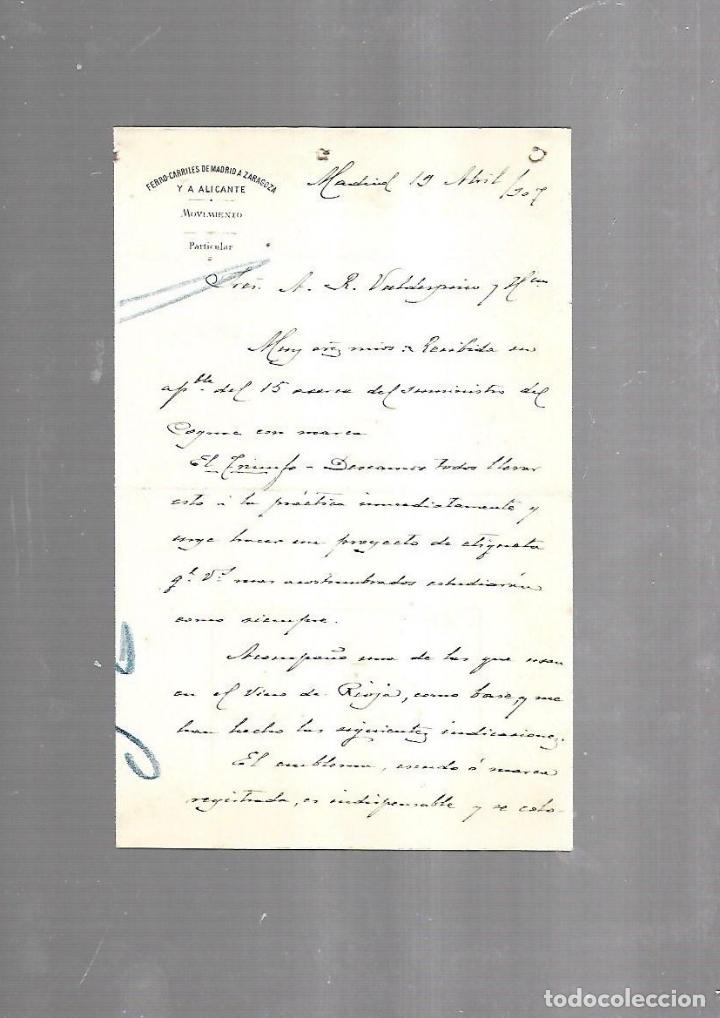 FERRO-CARRILES DE MADRID A ZARAGOZA
Y A ALICANTE
MOVIMIENTO
Particular
Madrid 19 Abril /907
Sres. A. R. Valdespino y Hno
Muy Srs mios: Recibida su
apble del 15 acerca del suministro del
Cognac con marca
El Triunfo - Deseamos todos llevar
esto á la práctica inmediatamente y
urge hacer un proyecto de etiqueta
qe Vs mas acostumbrados estudiarán
como siempre.
Acompaño una de las que usan
en el Vino de Rioja, como base, y me
han hecho las siguientes indicaciones.
El emblema, escudo ó marca
registrada, es indispensable y se colo-
todocoleccion.net